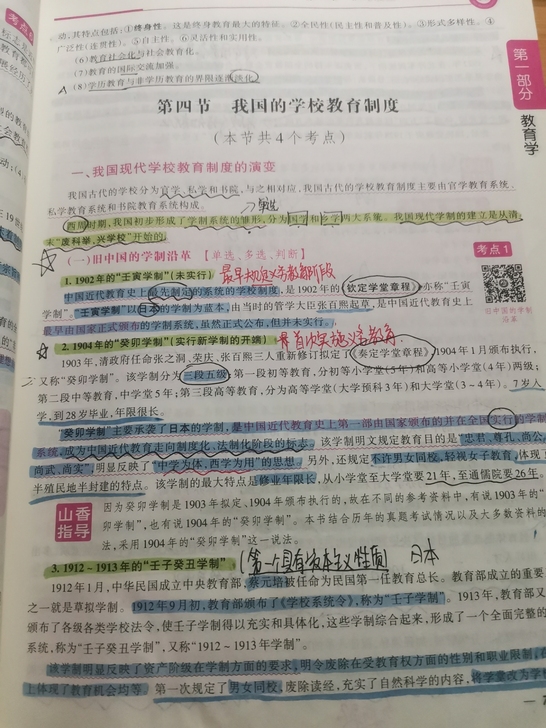 动,其特点包括:①终身性。这是终身教育最大的特征。②全民性(民主性和普及性)。③形式多样性。④
广泛性(连贯性)。⑤自主性。⑥灵活性和实用性。
(6)教育社会化与社会教育化。
(7)教育的国际交流加强。
(8)学历教育与非学历教育的界限逐渐淡化。
第四节 我国的学校教育制度
(本节共4个考点)
第一部分
教育学
一、我国现代学校教育制度的演变
我国古代的学校分为官学、私学和书院,与之相对应,我国古代的学校教育制度主要由官学教育系统、
私学教育系统和书院教育系统构成。
西周时期,我国初步形成了学制系统的雏形,分为国学和乡学两大系统。我国现代学制的建立是从清
末“废科举,兴学校”开始的。
(一)旧中国的学制沿革 【单选、多选、判断】
考点1
旧中国的学制
沿革
1. 1902年的“壬寅学制”(未实行)
最早规定义务教育阶段
中国近代教育史上最先制定的系统的学校制度,是1902年的《钦定学堂章程》,亦称“壬寅
学制”。“壬寅学制”以日本的学制为蓝本,由当时的管学大臣张百熙起草,是中国近代教育史上
最早由国家正式颁布的学制系统,虽然正式公布,但并未实行。
2. 1904年的“癸卯学制”(实行新学制的开端)
1903年,清政府任命张之洞、荣庆、张百熙三人重新修订拟定了《奏定学堂章程》,1904年1月颁布执行,
又称“癸卯学制”。该学制分为三段五级:第一段初等教育,分初等小学堂(5年)和高等小学堂(4年)两级;
第二段中等教育,中学堂5年;第三段高等教育,分为高等学堂(大学预科3年)和大学堂(3~4年)。7岁入
学,到28岁毕业,年限很长。
“癸卯学制”主要承袭了日本的学制,是中国近代教育史上第一部由国家颁布的并在全国实行的学制
系统,成为中国近代教育走向制度化、法制化阶段的标志。该学制明文规定教育目的是“忠君、尊孔、尚公、
尚武、尚实”,明显反映了“中学为体,西学为用”的思想。另外,还规定不许男女同校,轻视女子教育,体现了
半殖民地半封建的特点。该学制的最大特点是修业年限长,从小学堂至大学堂要21年,至通儒院要26年。
山香
指导
因为癸卯学制是1903年拟定、1904年颁布执行的,故在不同的参考资料中,有说1903年的“
卯学制”,也有说1904年的“癸卯学制”。本书结合历年的真题考试情况以及大多数资料的
法,采用1904年的“癸卯学制”这一说法。
3. 1912~1913年的“壬子癸丑学制”
(第一个具有资本主义性质)
日本
1912年1月,中华民国成立中央教育部,蔡元培被任命为民国第一任教育总长。教育部成立的重要
之一就是草拟学制。1912年9月初,教育部颁布了《学校系统令》,称为“壬子学制”。1913年,教育部又
颁布了各级各类学校法令,使壬子学制得以充实和具体化,这些学制综合起来,形成了一个全面完整的
系统,称为“壬子癸丑学制”,又称“1912~1913年学制”。
该学制明显反映了资产阶级在学制方面的要求,明令废除在受教育权方面的性别和职业限制,
上体现了教育机会均等。第一次规定了男女同校,废除读经,充实了自然科学的内容,将学堂改为学校